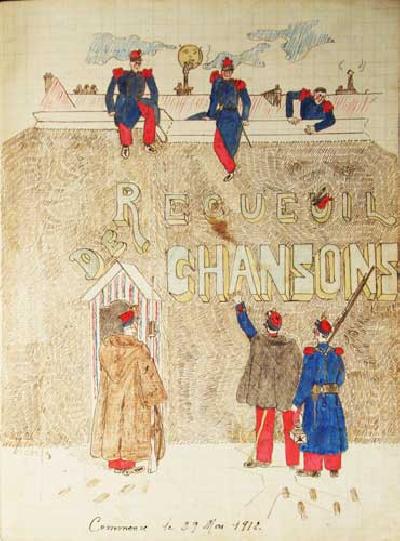 RECUEUIL
DE
CHANSONS
Commencé le 29 Mai 1912.